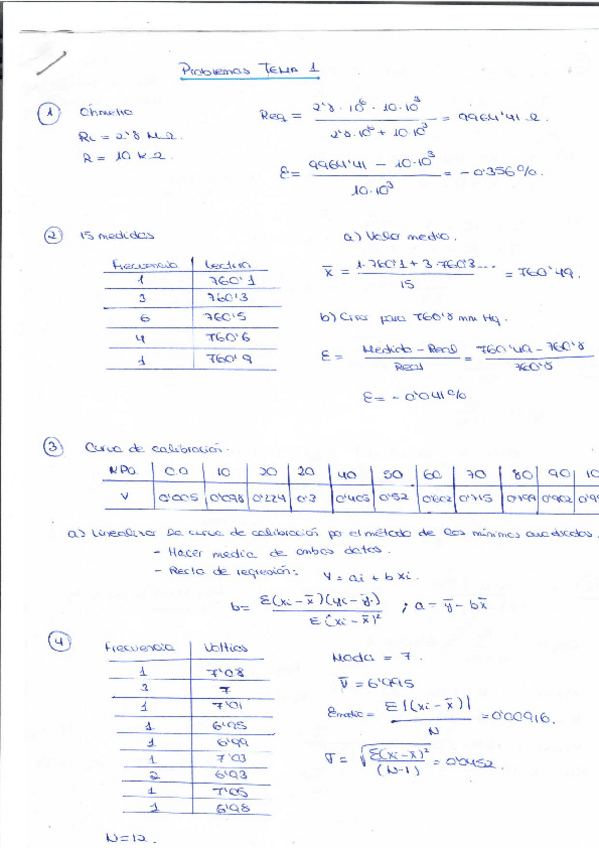 Problemas TEMA 1
1 Óhmetro
Ri = 2'8 MΩ.
R = 10 kΩ.
Req = 2'8·10⁶ · 10·10³ / 2'8·10⁶ + 10·10³ = 9964'41 Ω.
ε = 9964'41 - 10·10³ / 10·10³ = -0'356%.
2 15 medidas
Frecuencia | Lectura
1 | 760'1
3 | 760'3
6 | 760'5
4 | 760'6
1 | 760'9
a) Valor medio.
x̄ = 1·760'1 + 3·760'3... / 15 = 760'49.
b) Error para 760'8 mm Hg.
ε = Medido - Real / Real = 760'49 - 760'8 / 760'8
ε = -0'041%
3 Curva de calibración.
MPa | 00 | 10 | 20 | 30 | 40 | 50 | 60 | 70 | 80 | 90 | 10
V | 0'005 | 0'098 | 0'224 | 0'3 | 0'405 | 0'52 | 0'602 | 0'715 | 0'799 | 0'902 | 0'99
a) Linealizar la curva de calibración por el método de los mínimos cuadrados.
- Hacer media de ambos datos.
- Recta de regresión: Y = ai + bxi.
b = Σ(xi - x̄)(yi - ȳ) / Σ(xi - x̄)² ; a = ȳ - bx̄
4
Frecuencia | Voltios
1 | 7'08
3 | 7
1 | 7'01
1 | 6'95
1 | 6'99
1 | 7'03
2 | 6'93
1 | 7'05
1 | 6'98
N=12.
Moda = 7.
V̄ = 6'995
= Σ|(xi - x̄)| / N = 0'00916.
σ = √Σ(xi - x̄)² / (N-1) = 0'0452.